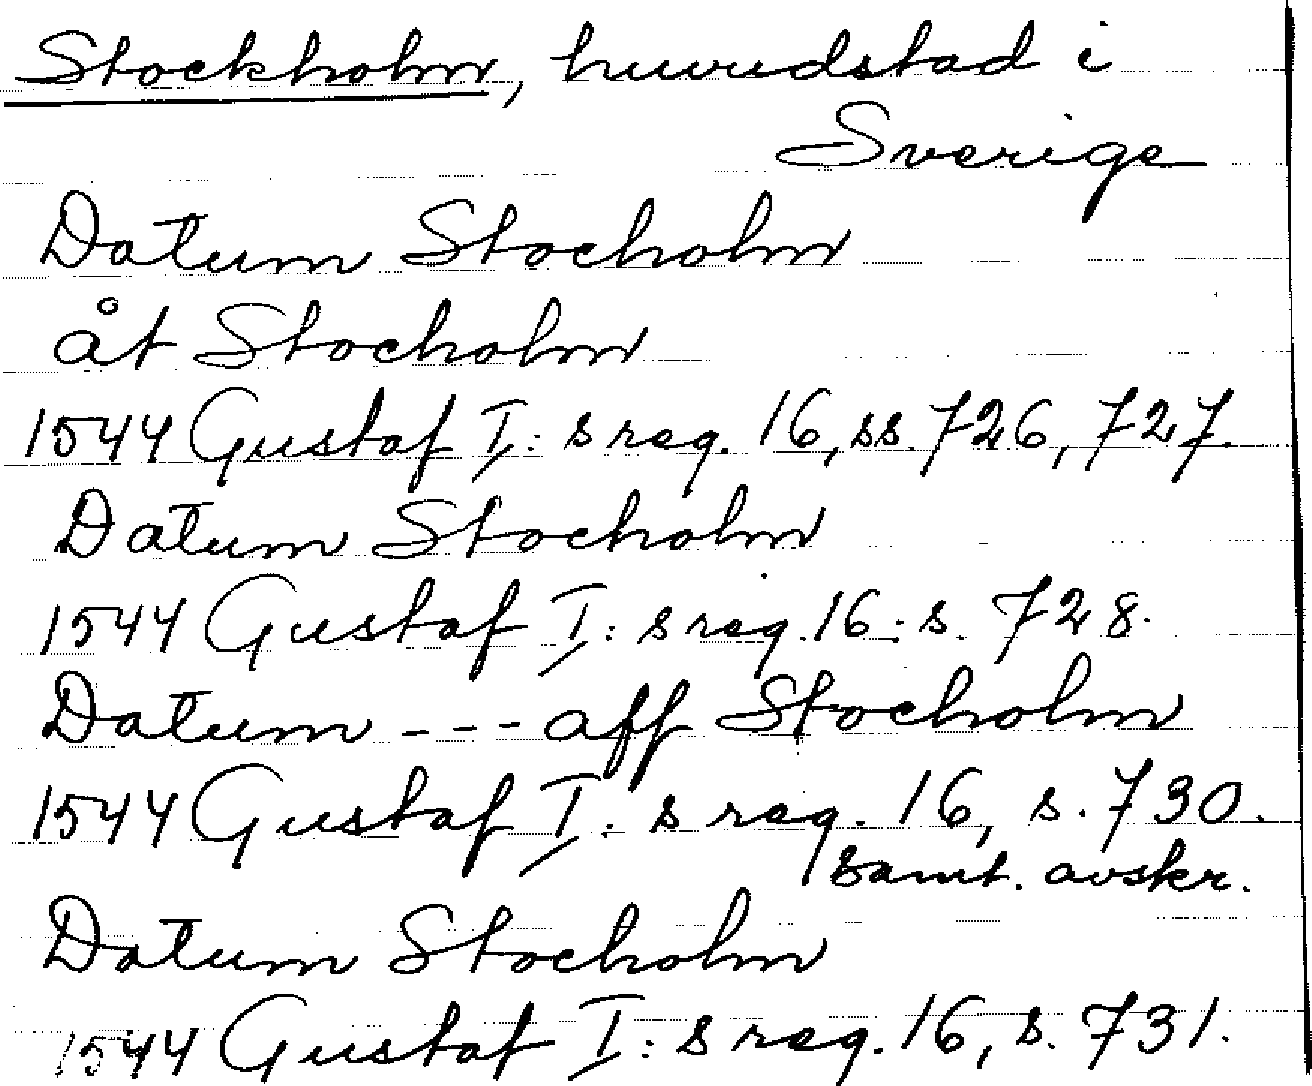 Stockholm, huvudstad i
Sverige
Datum Stocholm
åt Stocholm
1544 Gustaf I: s reg. 16, ss. 726, 727.
Datum Stocholm
1544 Gustaf I: s reg. 16: s. 728.
Datum - - - aff Stocholm
1544 Gustaf I: s reg. 16, s. 730.
samt. avskr.
Datum Stocholm
1544 Gustaf I: s reg. 16, s. 731.